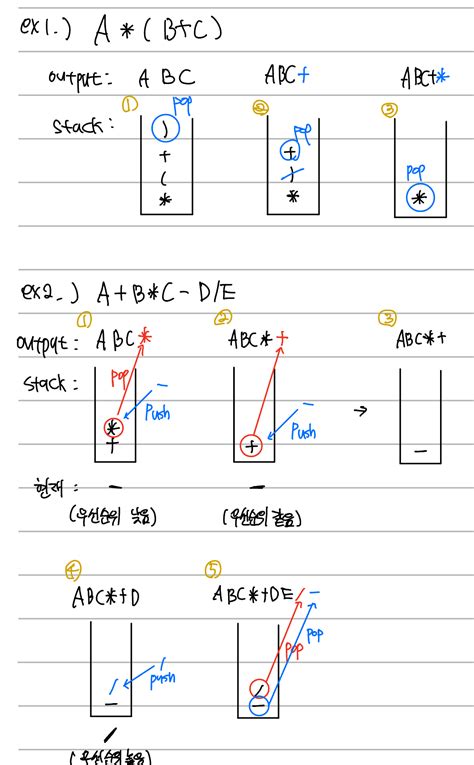 ex1.) A * ( B+C )
output: A B C ABC+ ABC+*
① pop ② ③
stack: ) pop pop
+ +
( (
* * *
ex2.) A+B*C-D/E
① ② ③
output: ABC* ABC*+ ABC*+
stack: pop - -
push push →
* +
+ -
현재: - -
(우선순위 낮음) (우선순위 같음)
④ ⑤
ABC*+D ABC*+DE/-
/ pop
/ push pop
- /
-
/
(우선순위 높음)